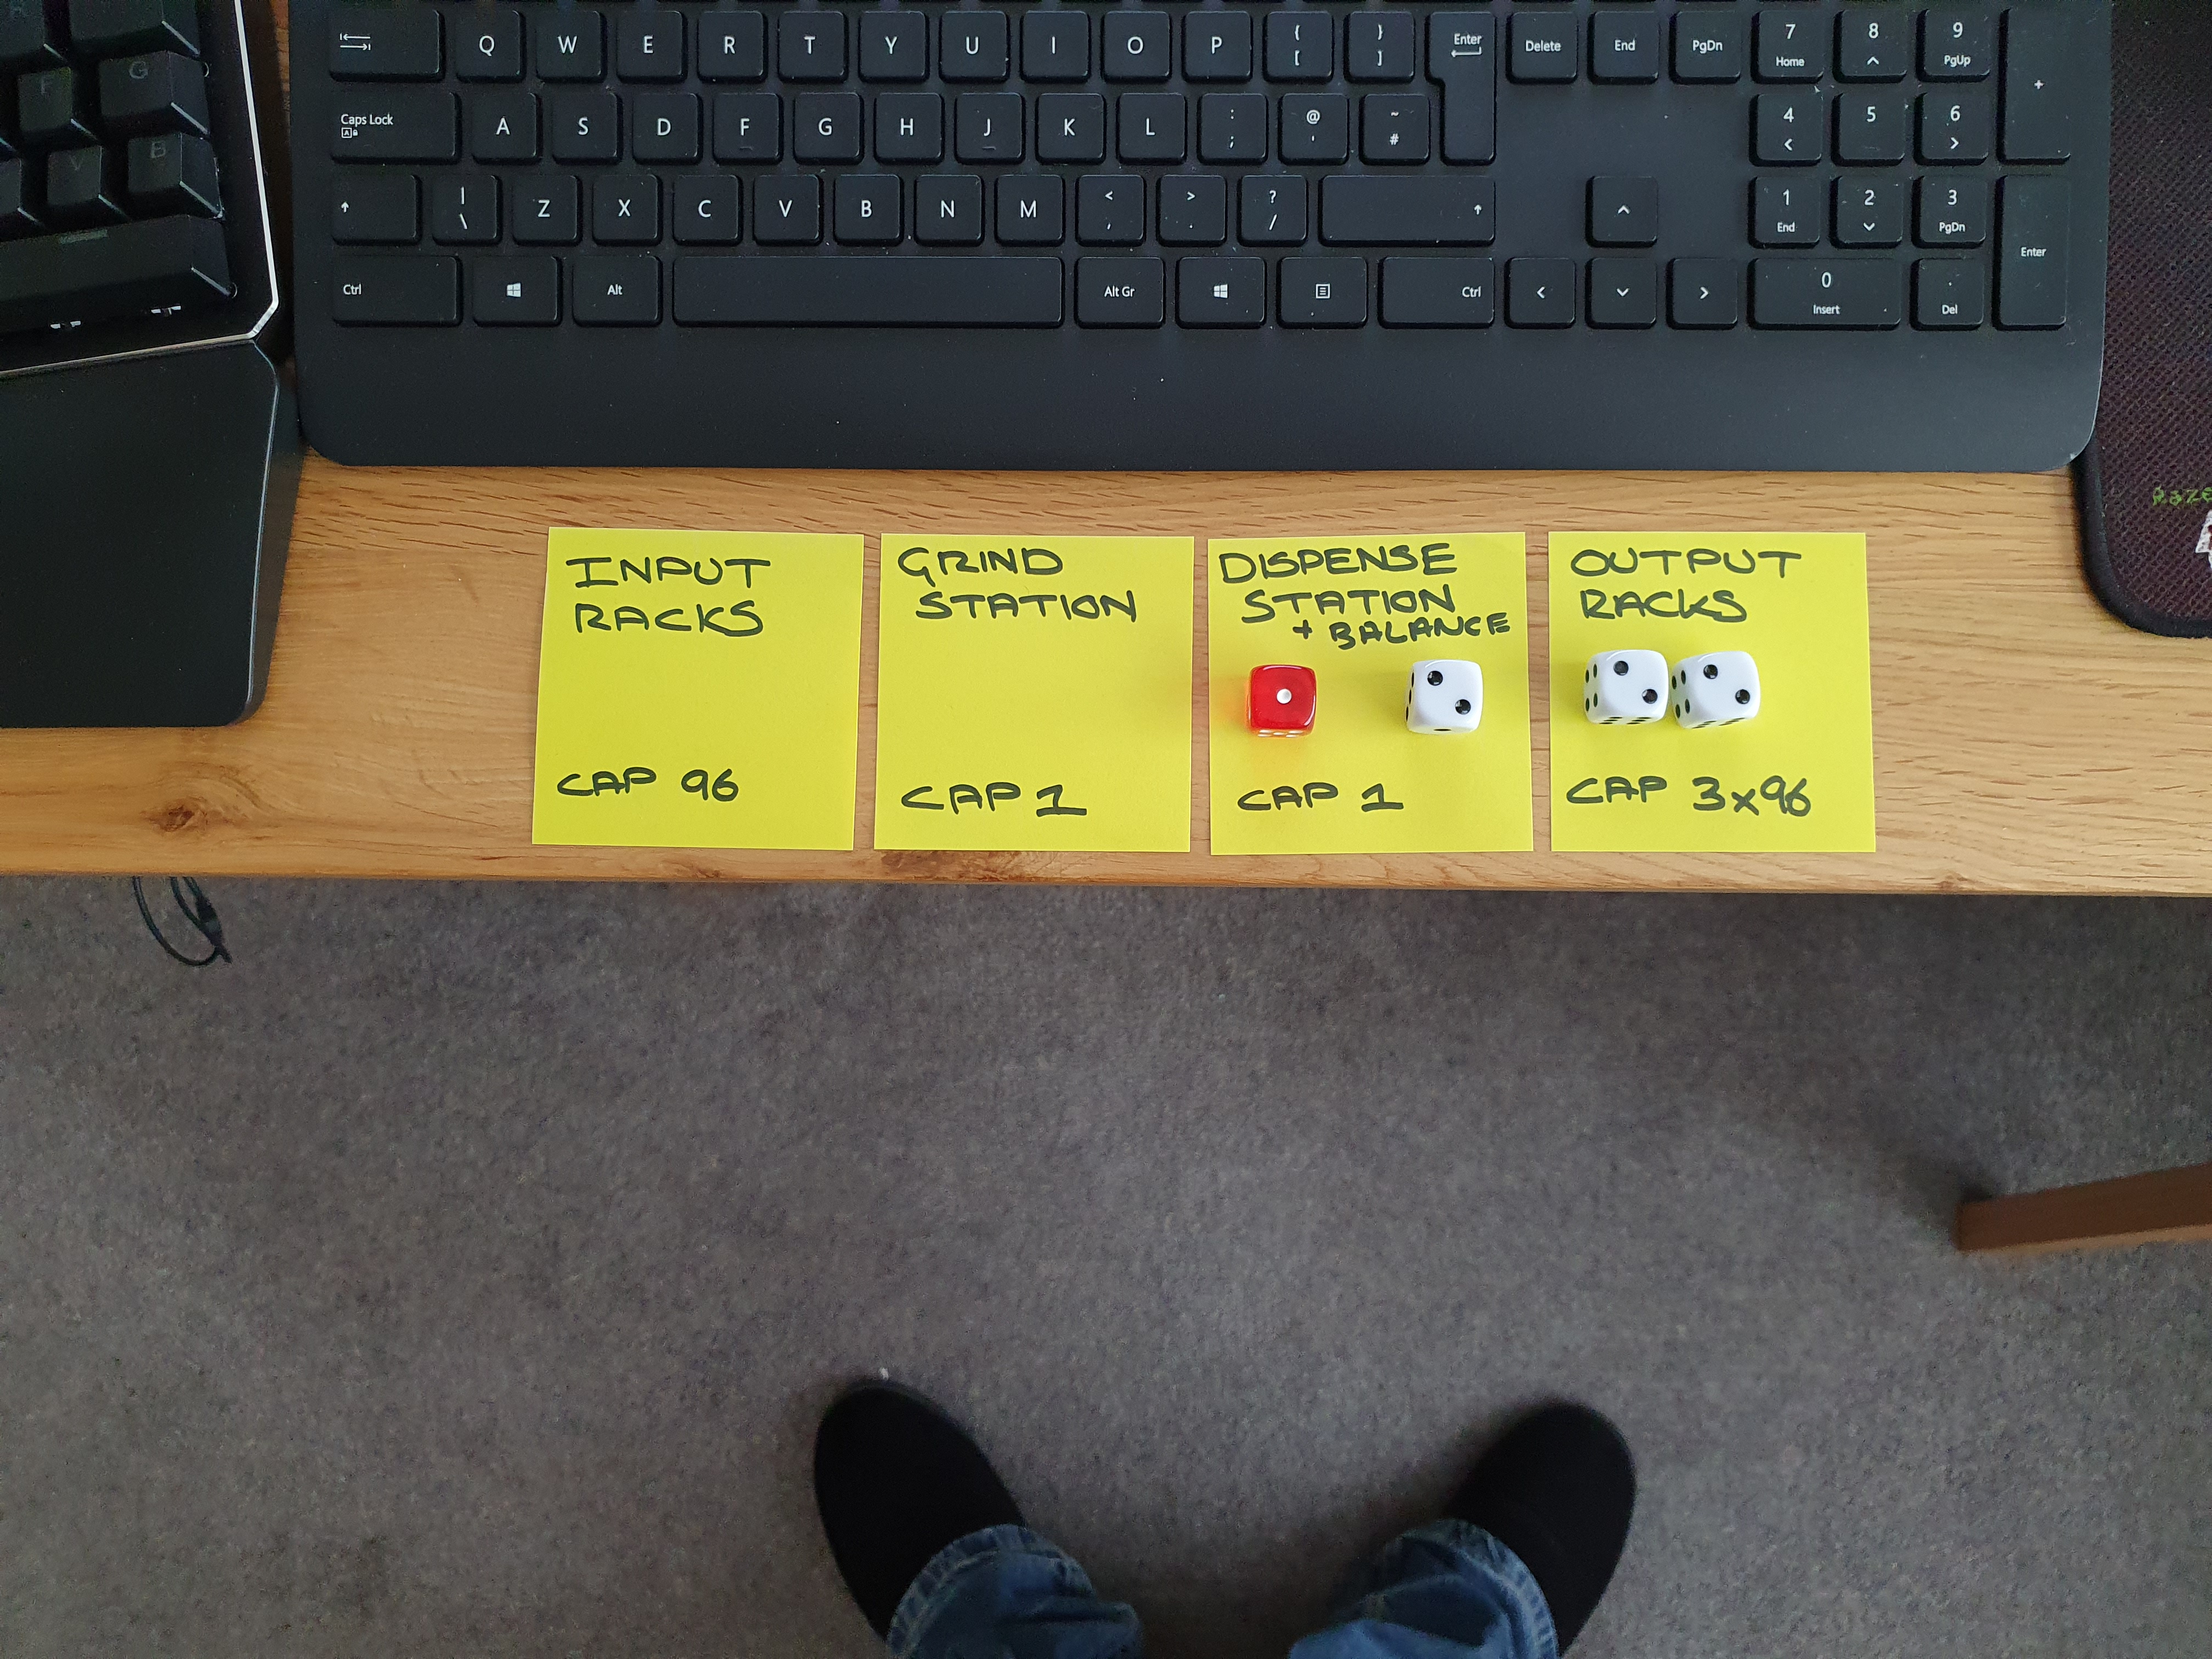 Q W E R T Y U I O P { [ } ] Enter Delete End PgDn 7 Home 8 9 PgUp +
Caps Lock A S D F G H J K L : ; @ ' ~ # 4 5 6
G
F
| \ Z X C V B N M < , > . ? / 1 End 2 3 PgDn Enter
V B
Ctrl Alt Alt Gr Ctrl 0 Insert . Del
INPUT
RACKS
CAP 96
GRIND
STATION
CAP 1
DISPENSE
STATION
+ BALANCE
CAP 1
OUTPUT
RACKS
CAP 3x96